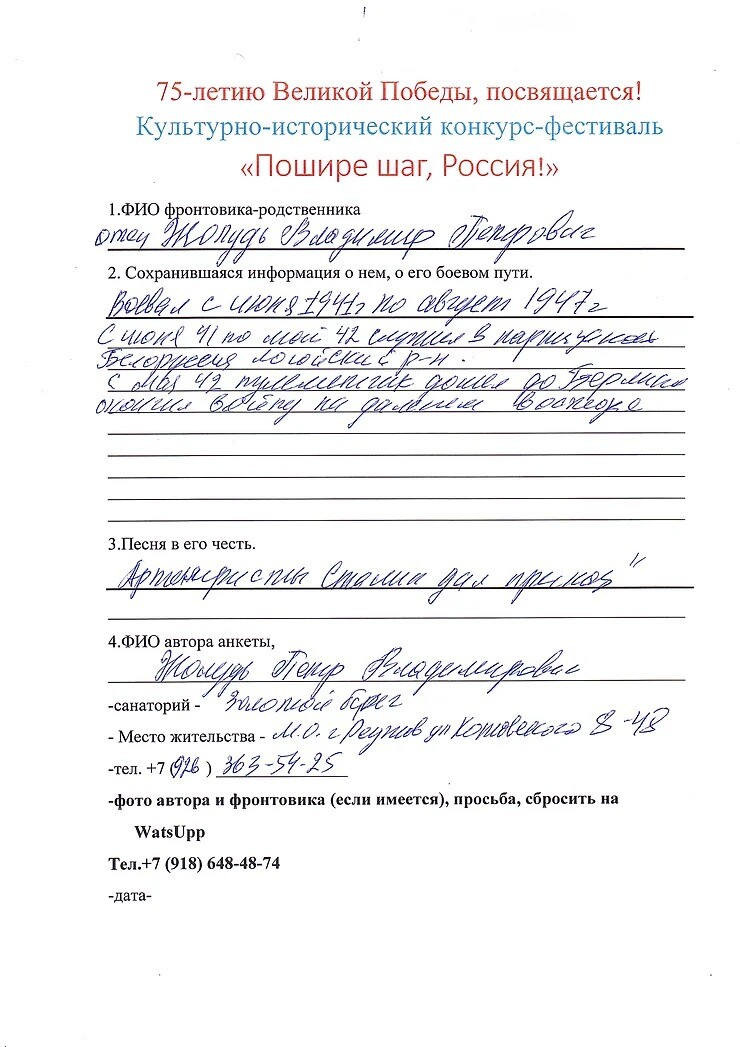 75-летию Великой Победы, посвящается!
Культурно-исторический конкурс-фестиваль
«Пошире шаг, Россия!»
1.ФИО фронтовика-родственника
отец Жолудь Владимир Петрович
2. Сохранившаяся информация о нем, о его боевом пути.
Воевал с июня 1941г по август 1947г
С июня 41 по май 42 служил в партизанах
Белоруссия логойский р-н.
с мая 42 пулеметчик дошел до Берлина
окончил войну на дальнем востоке
3.Песня в его честь.
Артиллеристы Сталин дал приказ"
4.ФИО автора анкеты,
Жолудь Петр Владимирович
-санаторий - Золотой берег
- Место жительства - М.О. г. Реутов ул Котовского 8-48
-тел. +7 (926) 363-54-25
-фото автора и фронтовика (если имеется), просьба, сбросить на
WatsUpp
Тел.+7 (918) 648-48-74
-дата-